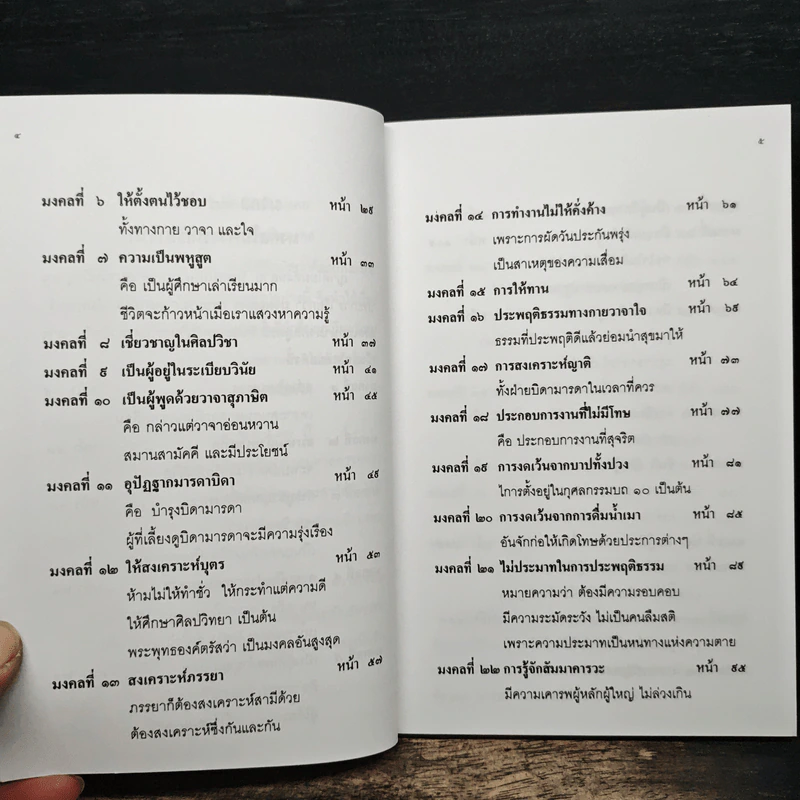 ๔
มงคลที่ ๖ ให้ตั้งตนไว้ชอบ หน้า ๒๙
ทั้งทางกาย วาจา และใจ
มงคลที่ ๗ ความเป็นพหูสูต หน้า ๓๓
คือ เป็นผู้ศึกษาเล่าเรียนมาก
ชีวิตจะก้าวหน้าเมื่อเราแสวงหาความรู้
มงคลที่ ๘ เชี่ยวชาญในศิลปวิชา หน้า ๓๗
มงคลที่ ๙ เป็นผู้อยู่ในระเบียบวินัย หน้า ๔๑
มงคลที่ ๑๐ เป็นผู้พูดด้วยวาจาสุภาษิต หน้า ๔๕
คือ กล่าวแต่วาจาอ่อนหวาน
สมานสามัคคี และมีประโยชน์
มงคลที่ ๑๑ อุปัฏฐากมารดาบิดา หน้า ๔๙
คือ บำรุงบิดามารดา
ผู้ที่เลี้ยงดูบิดามารดาจะมีความรุ่งเรือง
มงคลที่ ๑๒ ให้สงเคราะห์บุตร หน้า ๕๓
ห้ามไม่ให้ทำชั่ว ให้กระทำแต่ความดี
ให้ศึกษาศิลปวิทยา เป็นต้น
พระพุทธองค์ตรัสว่า เป็นมงคลอันสูงสุด
มงคลที่ ๑๓ สงเคราะห์ภรรยา หน้า ๕๗
ภรรยาก็ต้องสงเคราะห์สามีด้วย
ต้องสงเคราะห์ซึ่งกันและกัน
๕
มงคลที่ ๑๔ การทำงานไม่ให้คั่งค้าง หน้า ๖๑
เพราะการผัดวันประกันพรุ่ง
เป็นสาเหตุของความเสื่อม
มงคลที่ ๑๕ การให้ทาน หน้า ๖๔
มงคลที่ ๑๖ ประพฤติธรรมทางกายวาจาใจ หน้า ๖๙
ธรรมที่ประพฤติดีแล้วย่อมนำสุขมาให้
มงคลที่ ๑๗ การสงเคราะห์ญาติ หน้า ๗๓
ทั้งฝ่ายบิดามารดาในเวลาที่ควร
มงคลที่ ๑๘ ประกอบการงานที่ไม่มีโทษ หน้า ๗๗
คือ ประกอบการงานที่สุจริต
มงคลที่ ๑๙ การงดเว้นจากบาปทั้งปวง หน้า ๘๑
ไการตั้งอยู่ในกุศลกรรมบถ ๑๐ เป็นต้น
มงคลที่ ๒๐ การงดเว้นจากการดื่มน้ำเมา หน้า ๘๕
อันจักก่อให้เกิดโทษด้วยประการต่างๆ
มงคลที่ ๒๑ ไม่ประมาทในการประพฤติธรรม หน้า ๘๙
หมายความว่า ต้องมีความรอบคอบ
มีความระมัดระวัง ไม่เป็นคนลืมสติ
เพราะความประมาทเป็นหนทางแห่งความตาย
มงคลที่ ๒๒ การรู้จักสัมมาคารวะ หน้า ๙๕
มีความเคารพผู้หลักผู้ใหญ่ ไม่ล่วงเกิน